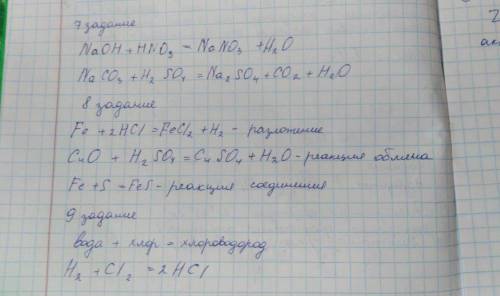 7 задание
NaOH + HNO₃ = NaNO₃ + H₂O
NaCO₃ + H₂SO₄ = Na₂SO₄ + CO₂ + H₂O
8 задание
Fe + 2HCl = FeCl₂ + H₂ - разложение
CuO + H₂SO₄ = CuSO₄ + H₂O - реакция обмена
Fe + S = FeS - реакция соединения
9 задание
вода + хлор = хлороводород
H₂ + Cl₂ = 2HCl